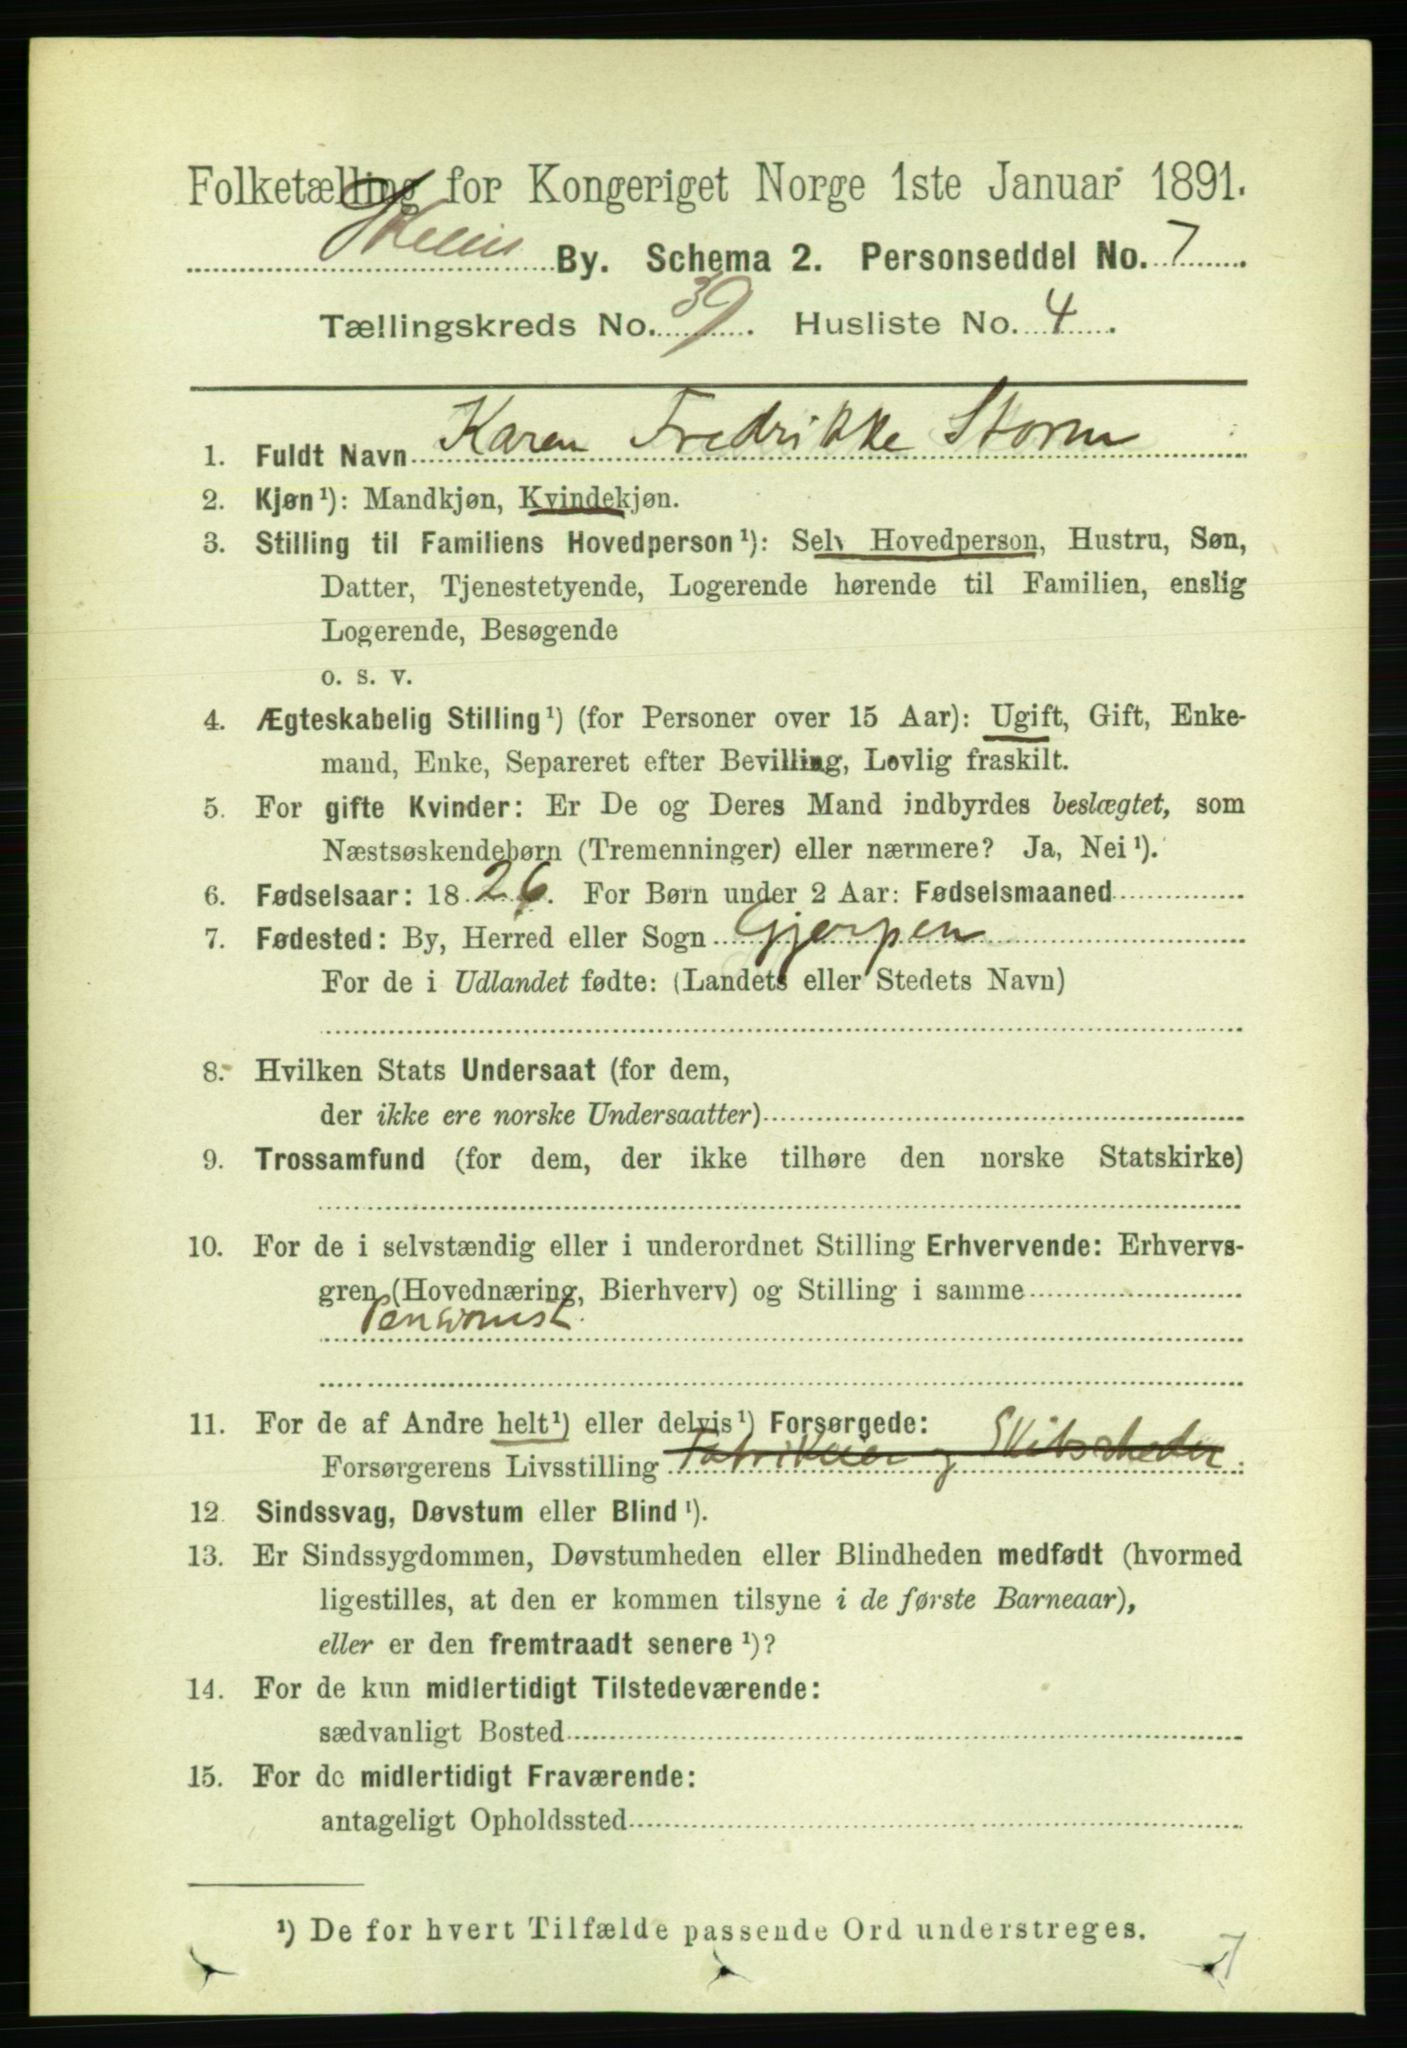 Folketælling for Kongeriget Norge 1ste Januar 1891.
Skien By. Schema 2. Personseddel No. 7
Tællingskreds No. 39. Husliste No. 4.
1. Fuldt Navn Karen Fredrikke Storm
2. Kjøn¹): Mandkjøn, Kvindekjøn.
3. Stilling til Familiens Hovedperson¹): Selv Hovedperson, Hustru, Søn,
Datter, Tjenestetyende, Logerende hørende til Familien, enslig
Logerende, Besøgende
o. s. v.
4. Ægteskabelig Stilling¹) (for Personer over 15 Aar): Ugift, Gift, Enke-
mand, Enke, Separeret efter Bevilling, Lovlig fraskilt.
5. For gifte Kvinder: Er De og Deres Mand indbyrdes beslægtet, som
Næstsøskendebørn (Tremenninger) eller nærmere? Ja, Nei¹).
6. Fødselsaar: 1826. For Børn under 2 Aar: Fødselsmaaned
7. Fødested: By, Herred eller Sogn Gjerpen
For de i Udlandet fødte: (Landets eller Stedets Navn)
8. Hvilken Stats Undersaat (for dem,
der ikke ere norske Undersaatter)
9. Trossamfund (for dem, der ikke tilhøre den norske Statskirke)
10. For de i selvstændig eller i underordnet Stilling Erhvervende: Erhvervs-
gren (Hovednæring, Bierhverv) og Stilling i samme
Pensionist.
11. For de af Andre helt¹) eller delvis¹) Forsørgede:
Forsørgerens Livsstilling Fabrikeier og Skibsrheder
12. Sindssvag, Døvstum eller Blind¹).
13. Er Sindssygdommen, Døvstumheden eller Blindheden medfødt (hvormed
ligestilles, at den er kommen tilsyne i de første Barneaar),
eller er den fremtraadt senere¹)?
14. For de kun midlertidigt Tilstedeværende:
sædvanligt Bosted
15. For de midlertidigt Fraværende:
antageligt Opholdssted
¹) De for hvert Tilfælde passende Ord understreges.
7